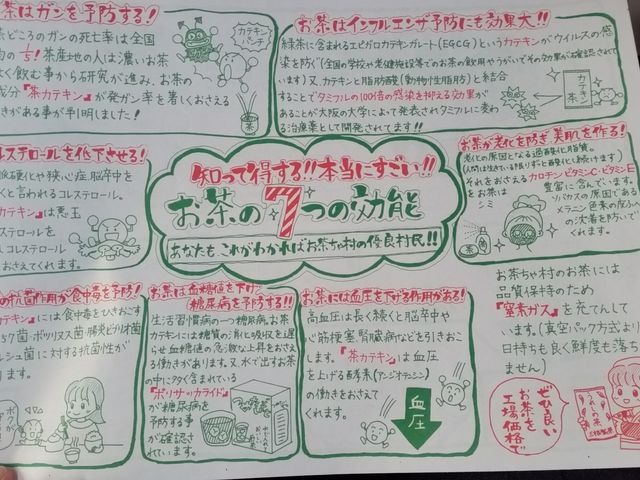 茶はガンを予防する!
茶どころのガンの死亡率は全国
均の1/5!茶産地の人は濃いお茶
よく飲む事から研究が進み、お茶の
成分『茶カテキン』が発ガン率を著しくおさえる
きがある事が半明しました!
カテキン
パンチ
茶
お茶はインフルエンザ予防にも効果大!!
緑茶に含まれるエピガロカテキンガレート(EGCG)というカテキンがウイルスの感
染を防ぐ(全国の学校や老健施設等でお茶の飲用やうがいでその効果が確認されて
います)又、カテキンと脂肪酸(動物性生脂肪)と結合
することでタミフルの100倍の感染を抑える効果が
あることが大阪の大学によって発表されタミフルに変わ
る治療薬として開発されてます!!
カテキン
茶
レステロールを低下させる!
脳卒中を
くと言われるコレステロール。
カテキン』は悪玉
ステロールを
コレステロール
おさえてくれます。
知って得する!!本当にすごい!!
お茶の7つの効能
あなたも、これがわかればお茶ちゃ村の優良村民!!
お茶が老化を防ぎ美肌を作る!
老化の原因となる過酸化脂質。
(人間は生きている限りずっと酸化し続けます)
それをおさえるカロチン・ビタミンC・ビタミンE
をお茶は
豊富に含んでいます。
シミ
ソバカスの原因である
メラニン色素の皮ふへ
の沈着を防いで
くれます。
の抗菌作用が食中毒を予防!
キン』には食中毒をひきおこす
ボツリヌス菌・腸炎ビブリオ菌
に対する抗菌性が
ります。
お茶は血糖値を下げ
糖尿病を予防する!!
生活習慣病の一つ糖尿病。お茶
カテキンには糖質の消化吸収を遅
らせ血糖値の急激な上昇をおさえ
る働きがあります。又、水で出すお茶
の中に多く含まれている
『ポリサッカライド』
が糖尿病を
予防する事
が確認さ
れています。
お茶には血圧を下げる作用がある!
高血圧は長く続くと脳卒中や
心筋梗塞、腎臓病などを引きおこ
します。『茶カテキン』は血圧
を上げる酵素(アンジオテンシン)
の働きをおさえて
くれます。
血圧
お茶ちゃ村のお茶には
品質保持のため
『窒素ガス』を充てんして
います。(真空パック方式より
日持ちも良く鮮度も落ち
ません)
ぜひ良い
お茶を
工場価格で